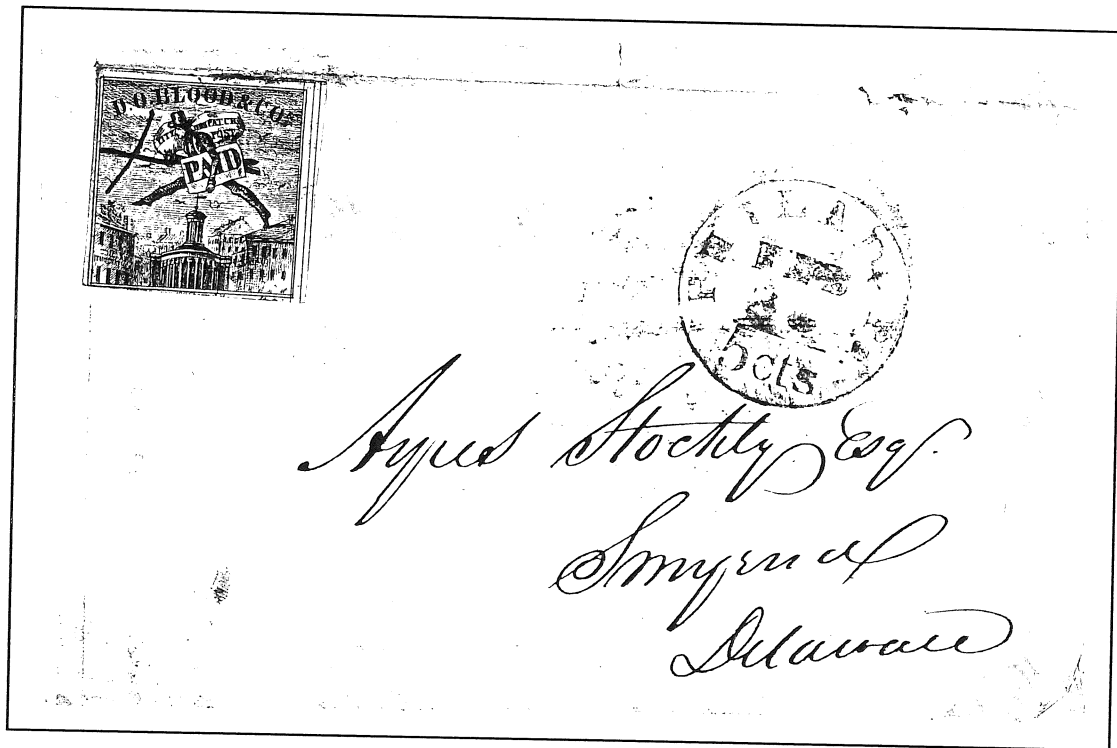 D.O.BLOOD & CO'S
CITY DESPATCH
POST
PAID
PHILADA Pa
FEB
5cts
Ayres Stockly Esq.
Smyrna
Delaware